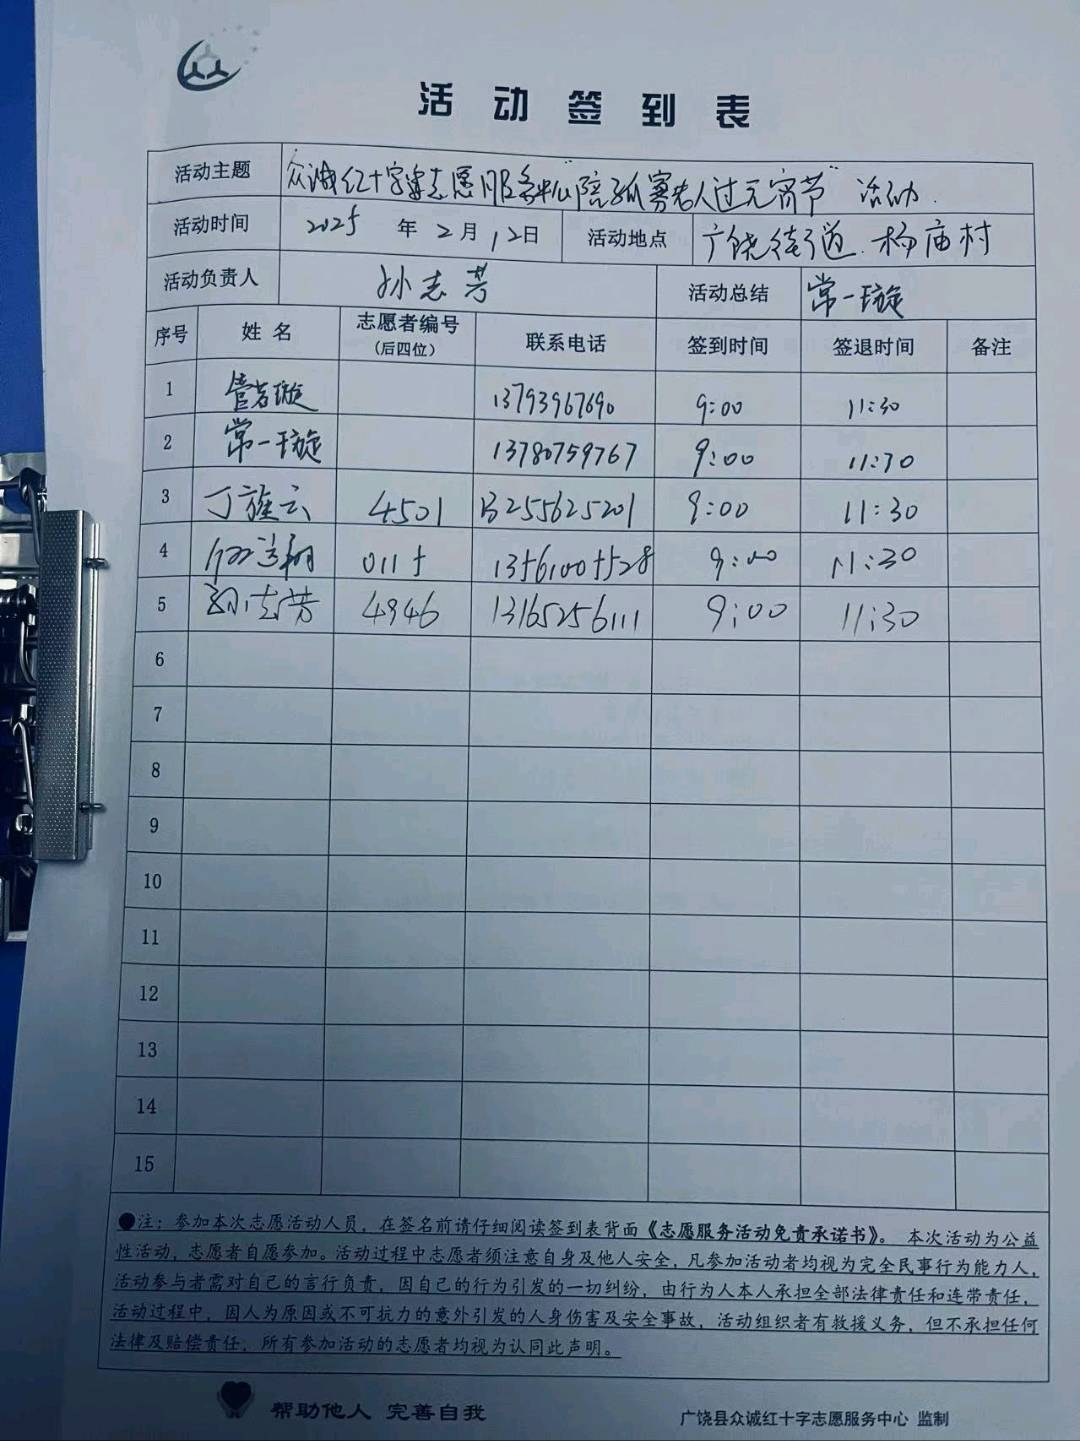 活动签到表
活动主题 众诚红十字志愿服务中心"陪孤寡老人过元宵节"活动.
活动时间 2025年2月12日 活动地点 广饶街道.杨庙村
活动负责人 孙志芳 活动总结 常一璇
序号 姓名 志愿者编号 (后四位) 联系电话 签到时间 签退时间 备注
1 管若璇 13793967690 9:00 11:30
2 常一璇 13780759767 9:00 11:30
3 丁旌云 4501 13255625201 9:00 11:30
4 9:00 11:30
5 孙志芳 4946 13165256111 9:00 11:30
6
7
8
9
10
11
12
13
14
15
●注：参加本次志愿活动人员，在签名前请仔细阅读签到表背面《志愿服务活动免责承诺书》。本次活动为公益
性活动，志愿者自愿参加。活动过程中志愿者须注意自身及他人安全，凡参加活动者均视为完全民事行为能力人，
活动参与者需对自己的言行负责，因自己的行为引发的一切纠纷，由行为人本人承担全部法律责任和连带责任，
活动过程中，因人为原因或不可抗力的意外引发的人身伤害及安全事故，活动组织者有救援义务，但不承担任何
法律及赔偿责任，所有参加活动的志愿者均视为认同此声明。
帮助他人 完善自我
广饶县众诚红十字志愿服务中心 监制